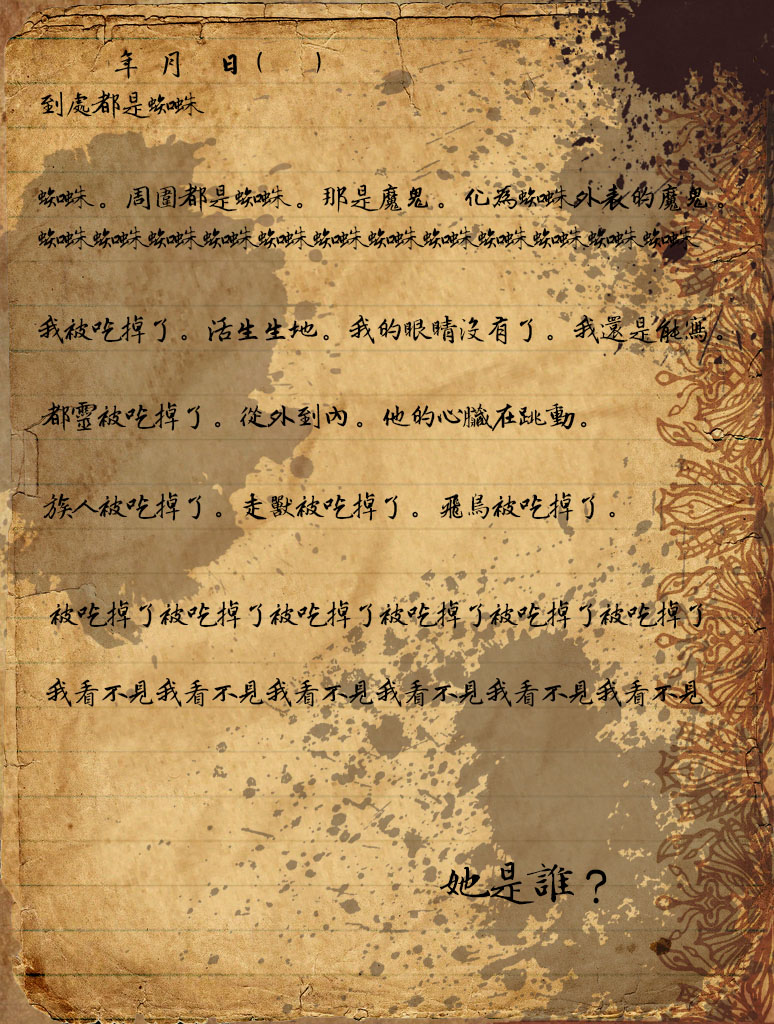 年 月 日( )
到處都是蜘蛛
蜘蛛。周圍都是蜘蛛。那是魔鬼。化為蜘蛛外表的魔鬼。
蜘蛛蜘蛛蜘蛛蜘蛛蜘蛛蜘蛛蜘蛛蜘蛛蜘蛛蜘蛛蜘蛛蜘蛛
我被吃掉了。活生生地。我的眼睛沒有了。我還是能寫。
都靈被吃掉了。從外到內。他的心臟在跳動。
族人被吃掉了。走獸被吃掉了。飛鳥被吃掉了。
被吃掉了被吃掉了被吃掉了被吃掉了被吃掉了被吃掉了
我看不見我看不見我看不見我看不見我看不見我看不見
她是誰？